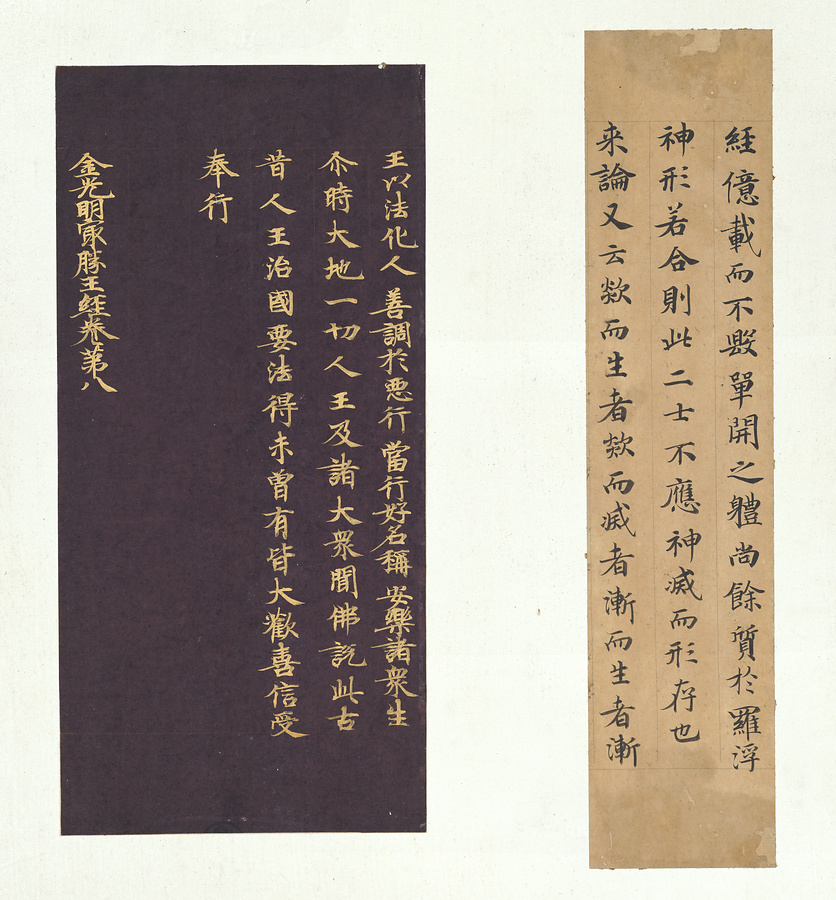 經億載而不毀單開之體尚餘質於羅浮
神形若合則此二士不應神滅而形存也
来論又云欻而生者欻而滅者漸而生者漸
王以法化人善調於惡行當行好名稱安樂諸衆生
尒時大地一切人王及諸大衆聞佛説此古
昔人王治國要法得未曾有皆大歡喜信受
奉行
金光明冣勝王經卷第八